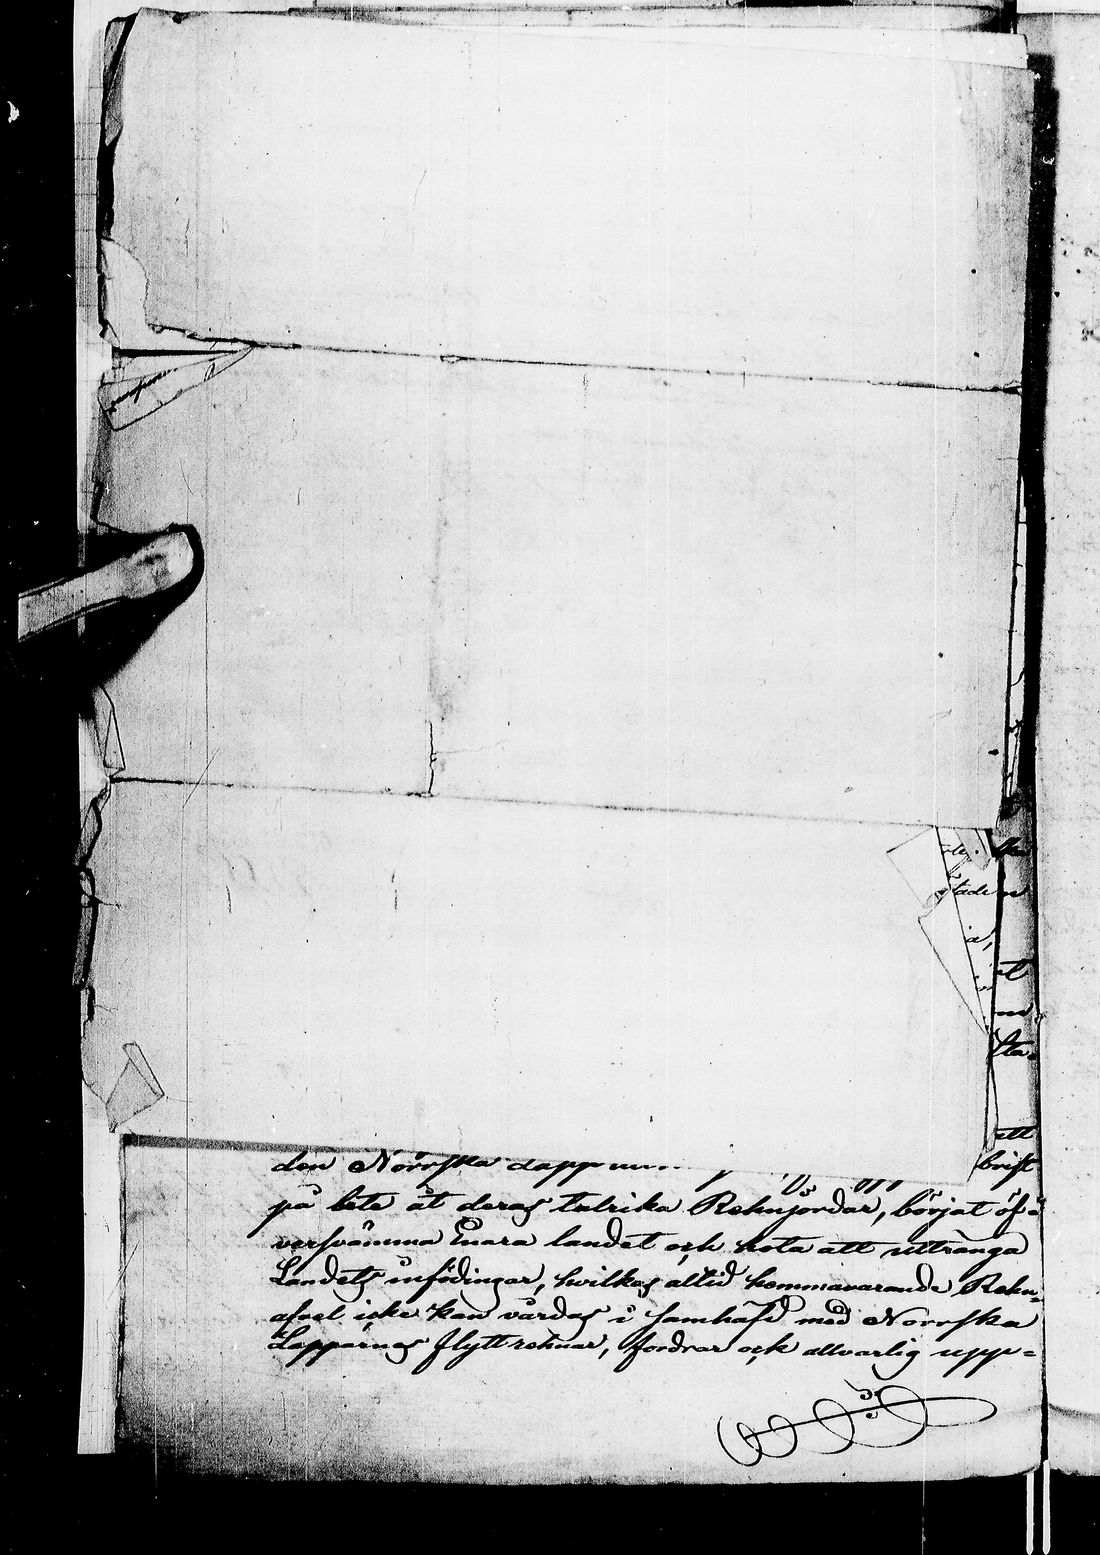 städe
ett
den Norrska Lapp brist
på bete åt deras talrika Rehnhjordar, börjat öf=
versvämma Enara landet och hota att uttränga
Landets infödingar, hvilkas altid hemmavarande Rehn=
afvel icke kan vårdas i samhäfd med Norrska
Lapparnas flyttrehnar, fordrar och allvarlig upp=